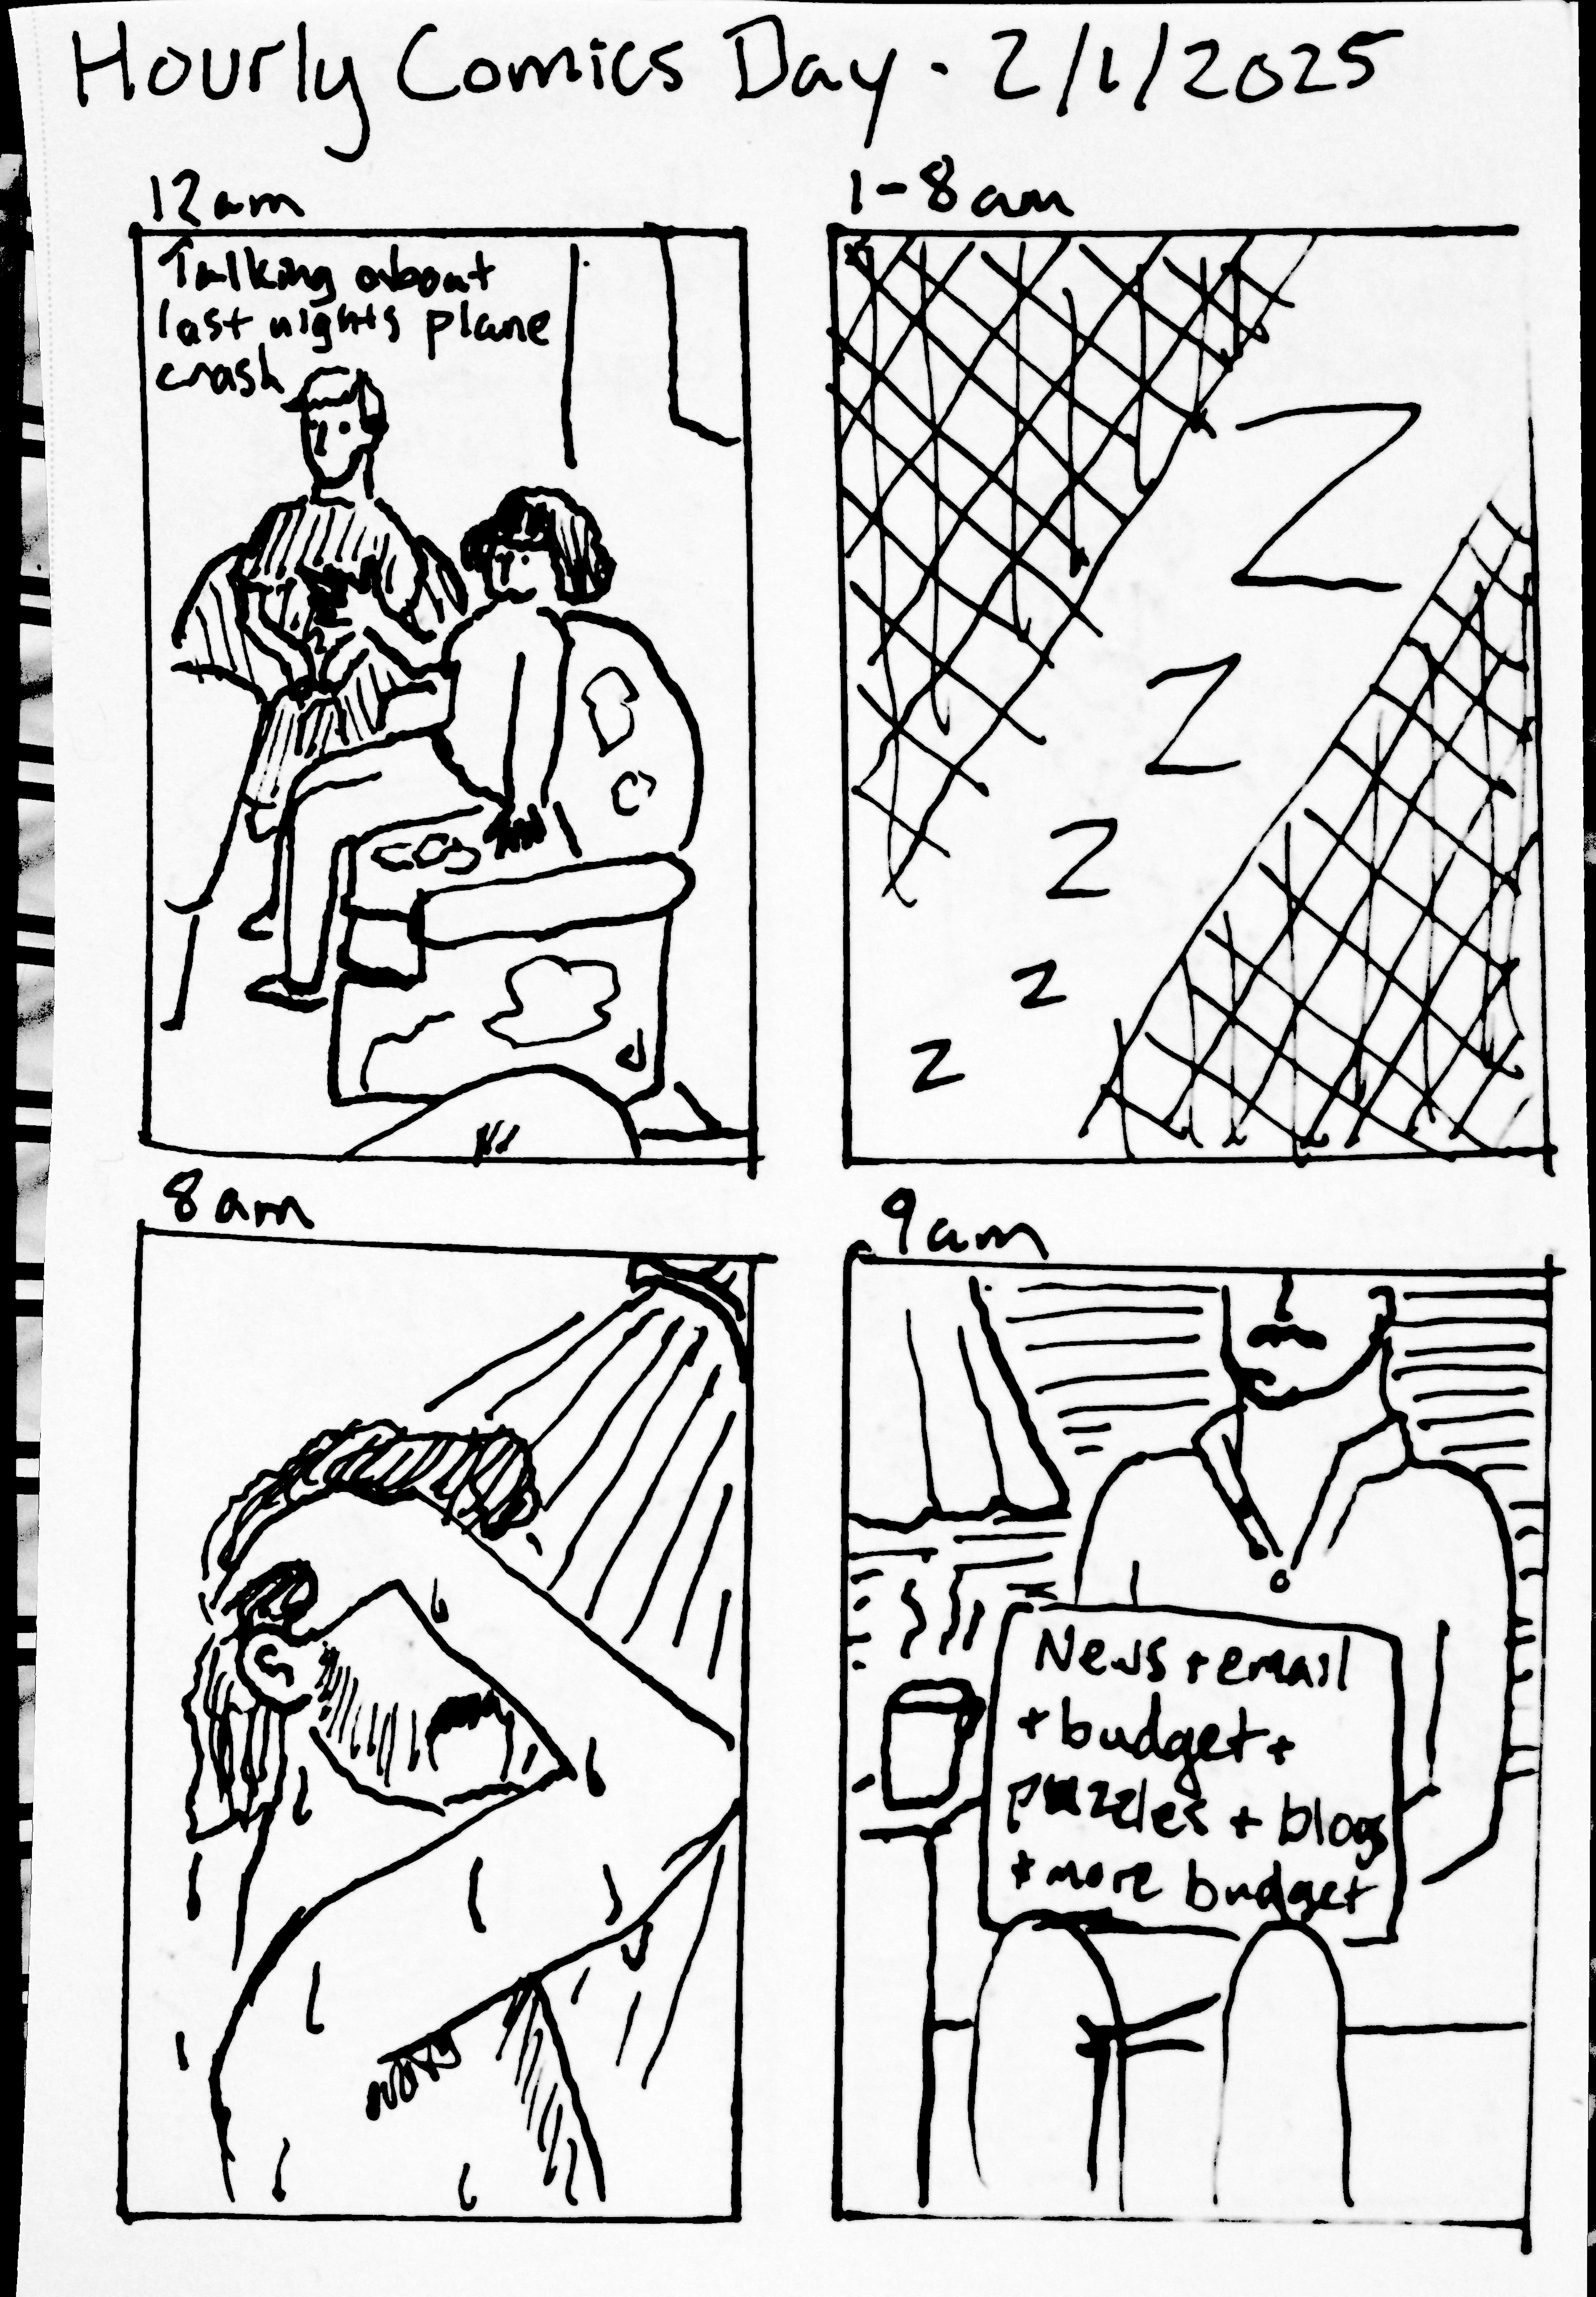 Hourly Comics Day - 2/1/2025
12am
Talking about
last nights plane
crash
1-8am
Z
Z
Z
z
z
8am
9am
News + email
+ budget +
puzzles + blogs
+ more budget